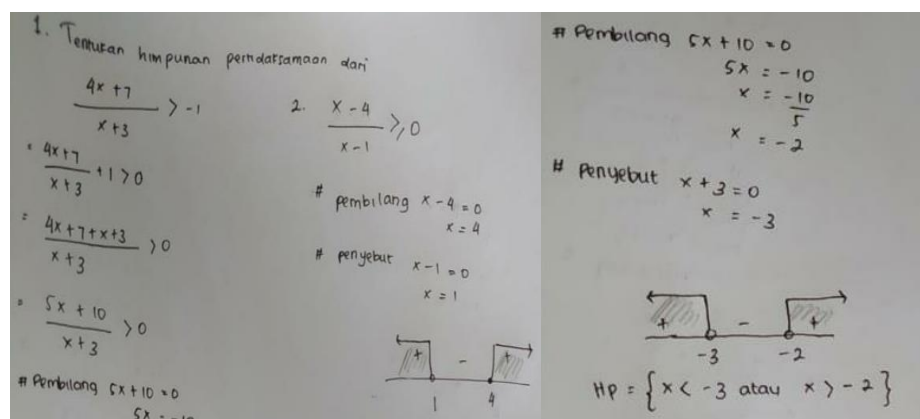 1. Tentukan himpunan pertidaksamaan dari
4x + 7 / x + 3 > -1
= 4x+7 / x+3 + 1 > 0
= 4x+7+x+3 / x+3 > 0
= 5x + 10 / x+3 > 0
# Pembilang 5x+10 = 0
5x = -10
2. x - 4 / x - 1 ≥ 0
# pembilang x - 4 = 0
x = 4
# penyebut x - 1 = 0
x = 1
+ - +
1 4
# Pembilang 5x + 10 = 0
5x = -10
x = -10 / 5
x = -2
# Penyebut x + 3 = 0
x = -3
+ - +
-3 -2
HP = { x < -3 atau x > -2 }